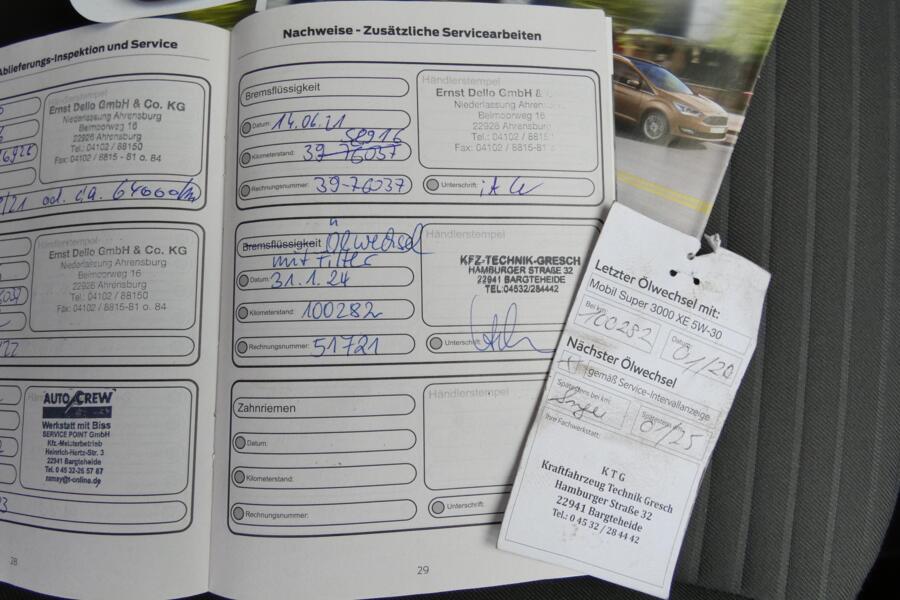 Ablieferungs-Inspektion und Service
Händlerstempel
Ernst Dello GmbH & Co. KG
Niederlassung Ahrensburg
Beimoorweg 16
22926 Ahrensburg
Tel.: 04102 / 88150
Fax: 04102 / 8815 - 81 o. 84
Händlerstempel
Ernst Dello GmbH & Co. KG
Niederlassung Ahrensburg
Beimoorweg 16
22926 Ahrensburg
Tel.: 04102 / 88150
Fax: 04102 / 8815-81 o. 84
AUTO CREW
Werkstatt mit Biss
SERVICE POINT GmbH
Kfz.-Meisterbetrieb
Heinrich-Hertz-Str. 3
22941 Bargteheide
Tel. 0 45 32-26 57 87
ramsy@t-online.de
28
Nachweise - Zusätzliche Servicearbeiten
Bremsflüssigkeit
Datum: 14.06.21
58916
Kilometerstand: 39-76037
Rechnungsnummer: 39-76037
Händlerstempel
Ernst Dello GmbH &
Niederlassung Ahrens
Beimoorweg 16
22926 Ahrensburg
Tel.: 04102 / 8815
Fax: 04102 / 8815-81
Unterschrift:
Bremsflüssigkeit Ölwechsel
mit Filter
Datum: 31.1.24
Kilometerstand: 100282
Rechnungsnummer: 51721
Händlerstempel
KFZ-TECHNIK-GRESCH
HAMBURGER STRAßE 32
22941 BARGTEHEIDE
TEL.:04532/284442
Unterschrift:
Zahnriemen
Datum:
Kilometerstand:
Rechnungsnummer:
Händlerstempel
Unterschrift:
29
Letzter Ölwechsel mit:
Mobil Super 3000 XE 5W-30
Bei km: 100282
Datum:
Nächster Ölwechsel
gemäß Service-Intervallanzeige
Spätestens bei km:
Spätestens am: 01/25
Ihre Fachwerkstatt:
K T G
Kraftfahrzeug Technik Gresch
Hamburger Straße 32
22941 Bargteheide
Tel.: 0 45 32 / 28 44 42